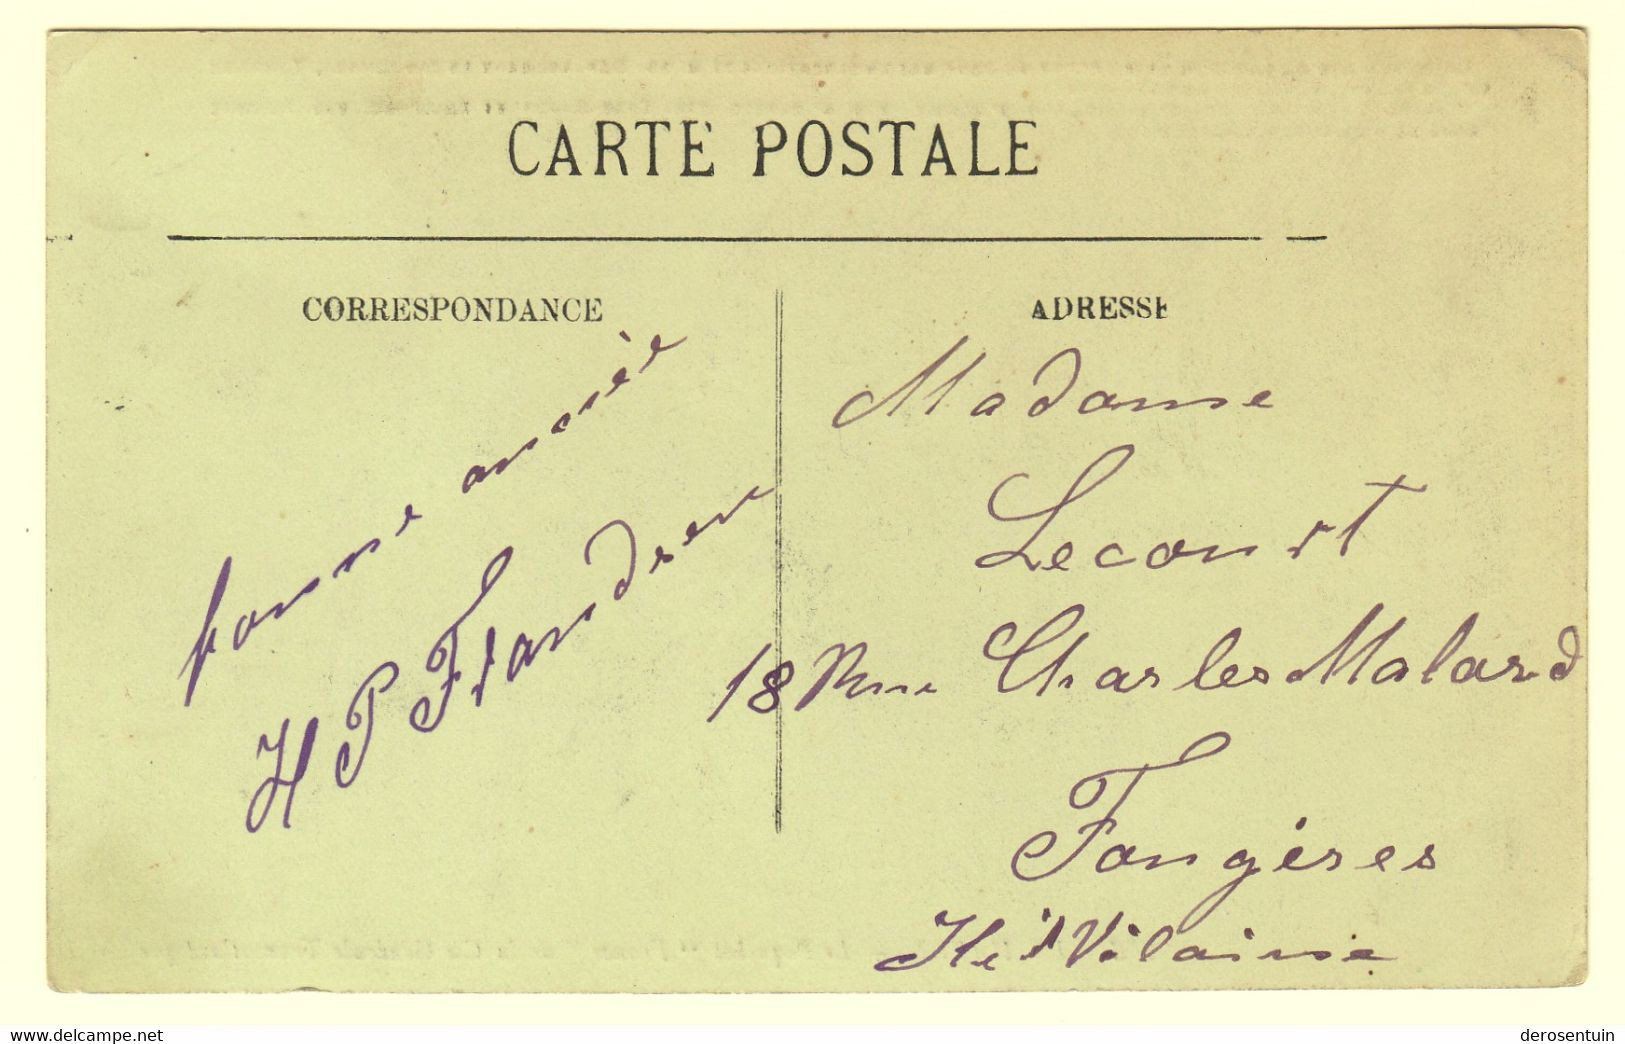 CARTE POSTALE
CORRESPONDANCE
ADRESSE
bonne année
H P Flandren
Madame
Lecourt
18 Rue Charles Malard
Fougères
Ile et Vilaine
www.delcampe.net
derosentuin